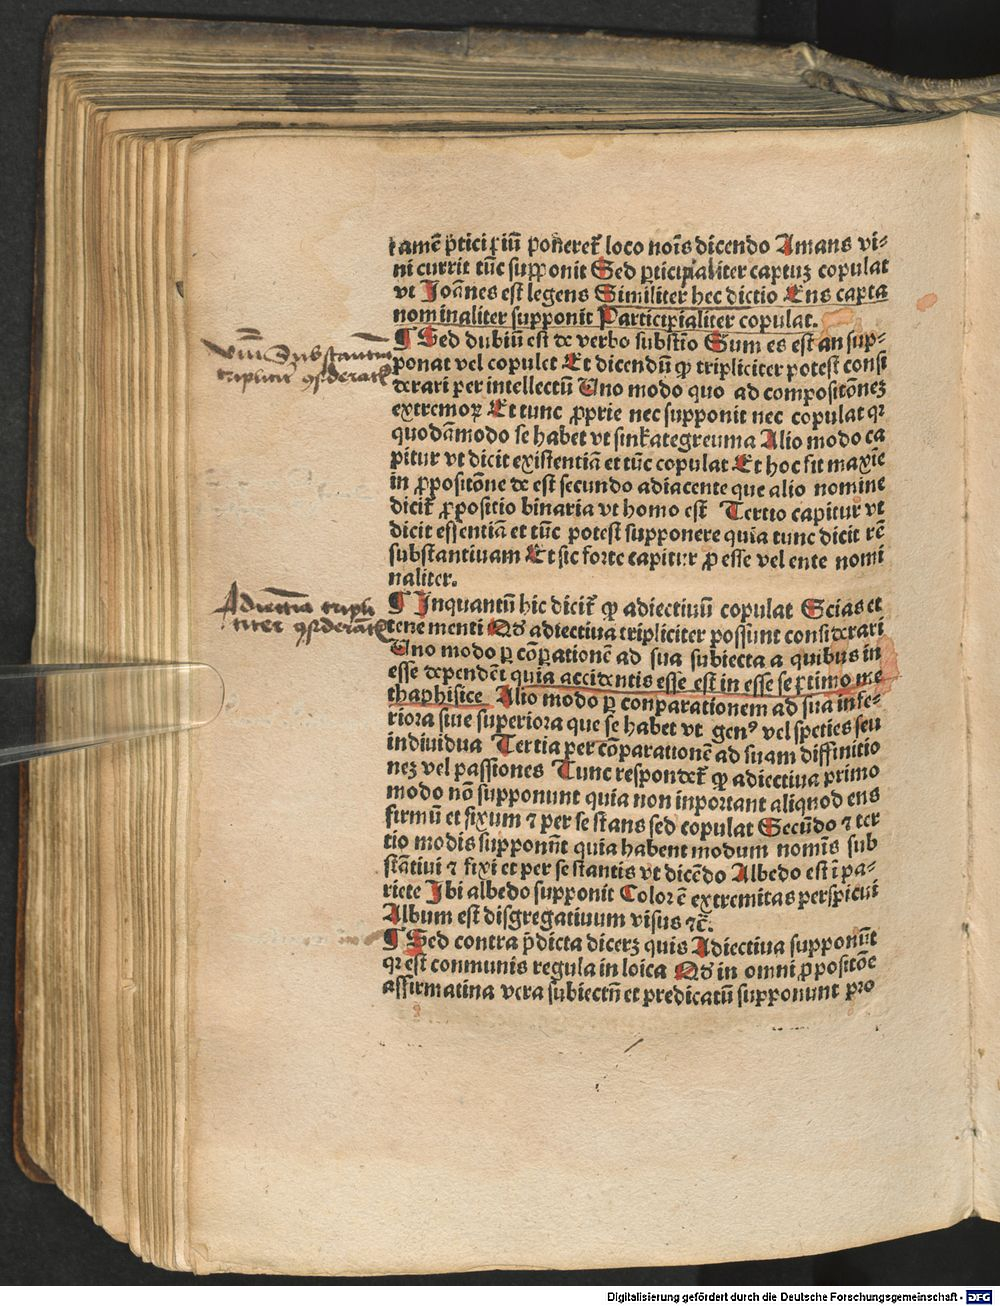 tamē pͥticipiū poneret᷑ loco noīs dicendo Amans vi⸗
ni currit tūc supponit Sed ꝑticipialiter captuꝫ copulat
vt Joānes est legens Similiter hec dictio Ens capta
nominaliter supponit Participialiter copulat.
¶ Sed dubiū est de verbo substātio Sum es est an sup⸗
ponat vel copulet Et dicendū ꝙ tripliciter potest consi
derari per intellectū Uno modo quo ad compositōneꝫ
extremoꝝ Et tunc ꝓprie nec supponit nec copulat qꝛ
quodāmodo se habet vt sinkategreuma Alio modo ca
pitur vt dicit existentiā et tūc copulat Et hoc fit maxīe
in ꝓpositōne de est secundo adiacente que alio nomine
dicit᷑ ꝓpositio binaria vt homo est Tertio capitur vt
dicit essentiā et tūc potest supponere quia tunc dicit rē
substantiuam Et sic forte capitur ꝓ esse vel ente nomi
naliter.
¶ Inquantū hic dicit᷑ ꝙ adiectiuū copulat Scias et
tene menti Qd adiectiua tripliciter possunt considerari
Uno modo ꝑ cōꝑationē ad sua subiecta a quibus in
esse dependēt quia accidentis esse est in esse septimo me
thaphisice Alio modo ꝑ conparationem ad sua infe⸗
riora siue superiora que se habet vt genꝰ vel speties seu
indiuidua Tertia per cōparationē ad suam diffinitio
neꝫ vel passiones Tunc respondet᷑ ꝙ adiectiua primo
modo nō supponunt quia non inportant aliquod ens
firmū et fixum ⁊ per se stans sed copulat Secūdo ⁊ ter
tio modis supponūt quia habent modum nomīs sub
stātiui ⁊ fixi et per se stantis vt dicēdo Albedo est ī pa⸗
riete Ibi albedo supponit Color ē extremitas perspicui
Album est disgregatiuum visus ⁊c̄.
¶ Sed contra p̄dicta dicerꝫ quis Adiectiua supponūt
qꝛ est conmunis regula in loica Qd in omni ꝓpositōe
affirmatina vera subiectū et predicatū supponunt pro
vm̄ Substantiuū
triplicit᷑ ꝯsiderat᷑
Adiectiua tripli
citer ꝯsiderāt᷑
Digitalisierung gefördert durch die Deutsche Forschungsgemeinschaft - DFG